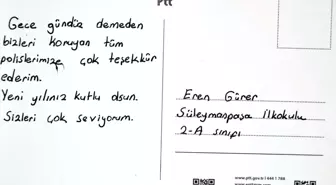 Ptt
Gece gündüz demeden
bizleri koruyan tüm
polislerimize çok teşekkür
ederim.
Yeni yılınız kutlu olsun.
Sizleri çok seviyorum.
Eren Gürer
Süleymanpaşa İlkokulu
2-A sınıfı
www.ptt.gov.tr | 444 1 788